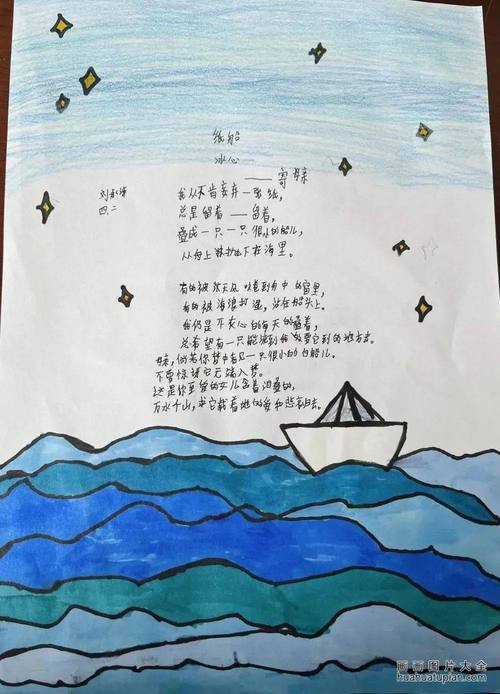 纸船
冰心
——寄母亲
刘
四二
我从不肯妄弃一张纸,
总是留着——留着,
叠成一只一只很小的船儿,
从舟上抛下在海里。
有的被天风吹卷到舟中的窗里,
有的被海浪打湿,沾在船头上。
我仍是不灰心的每天的叠着,
总希望有一只能流到我要它到的地方去。
母亲,倘若你梦中看见一只很小的白船儿,
不要惊讶它无端入梦。
这是你至爱的女儿含着泪叠的,
万水千山,求它载着她的爱和悲哀归去。
画画图片大全
huahuatupian.com